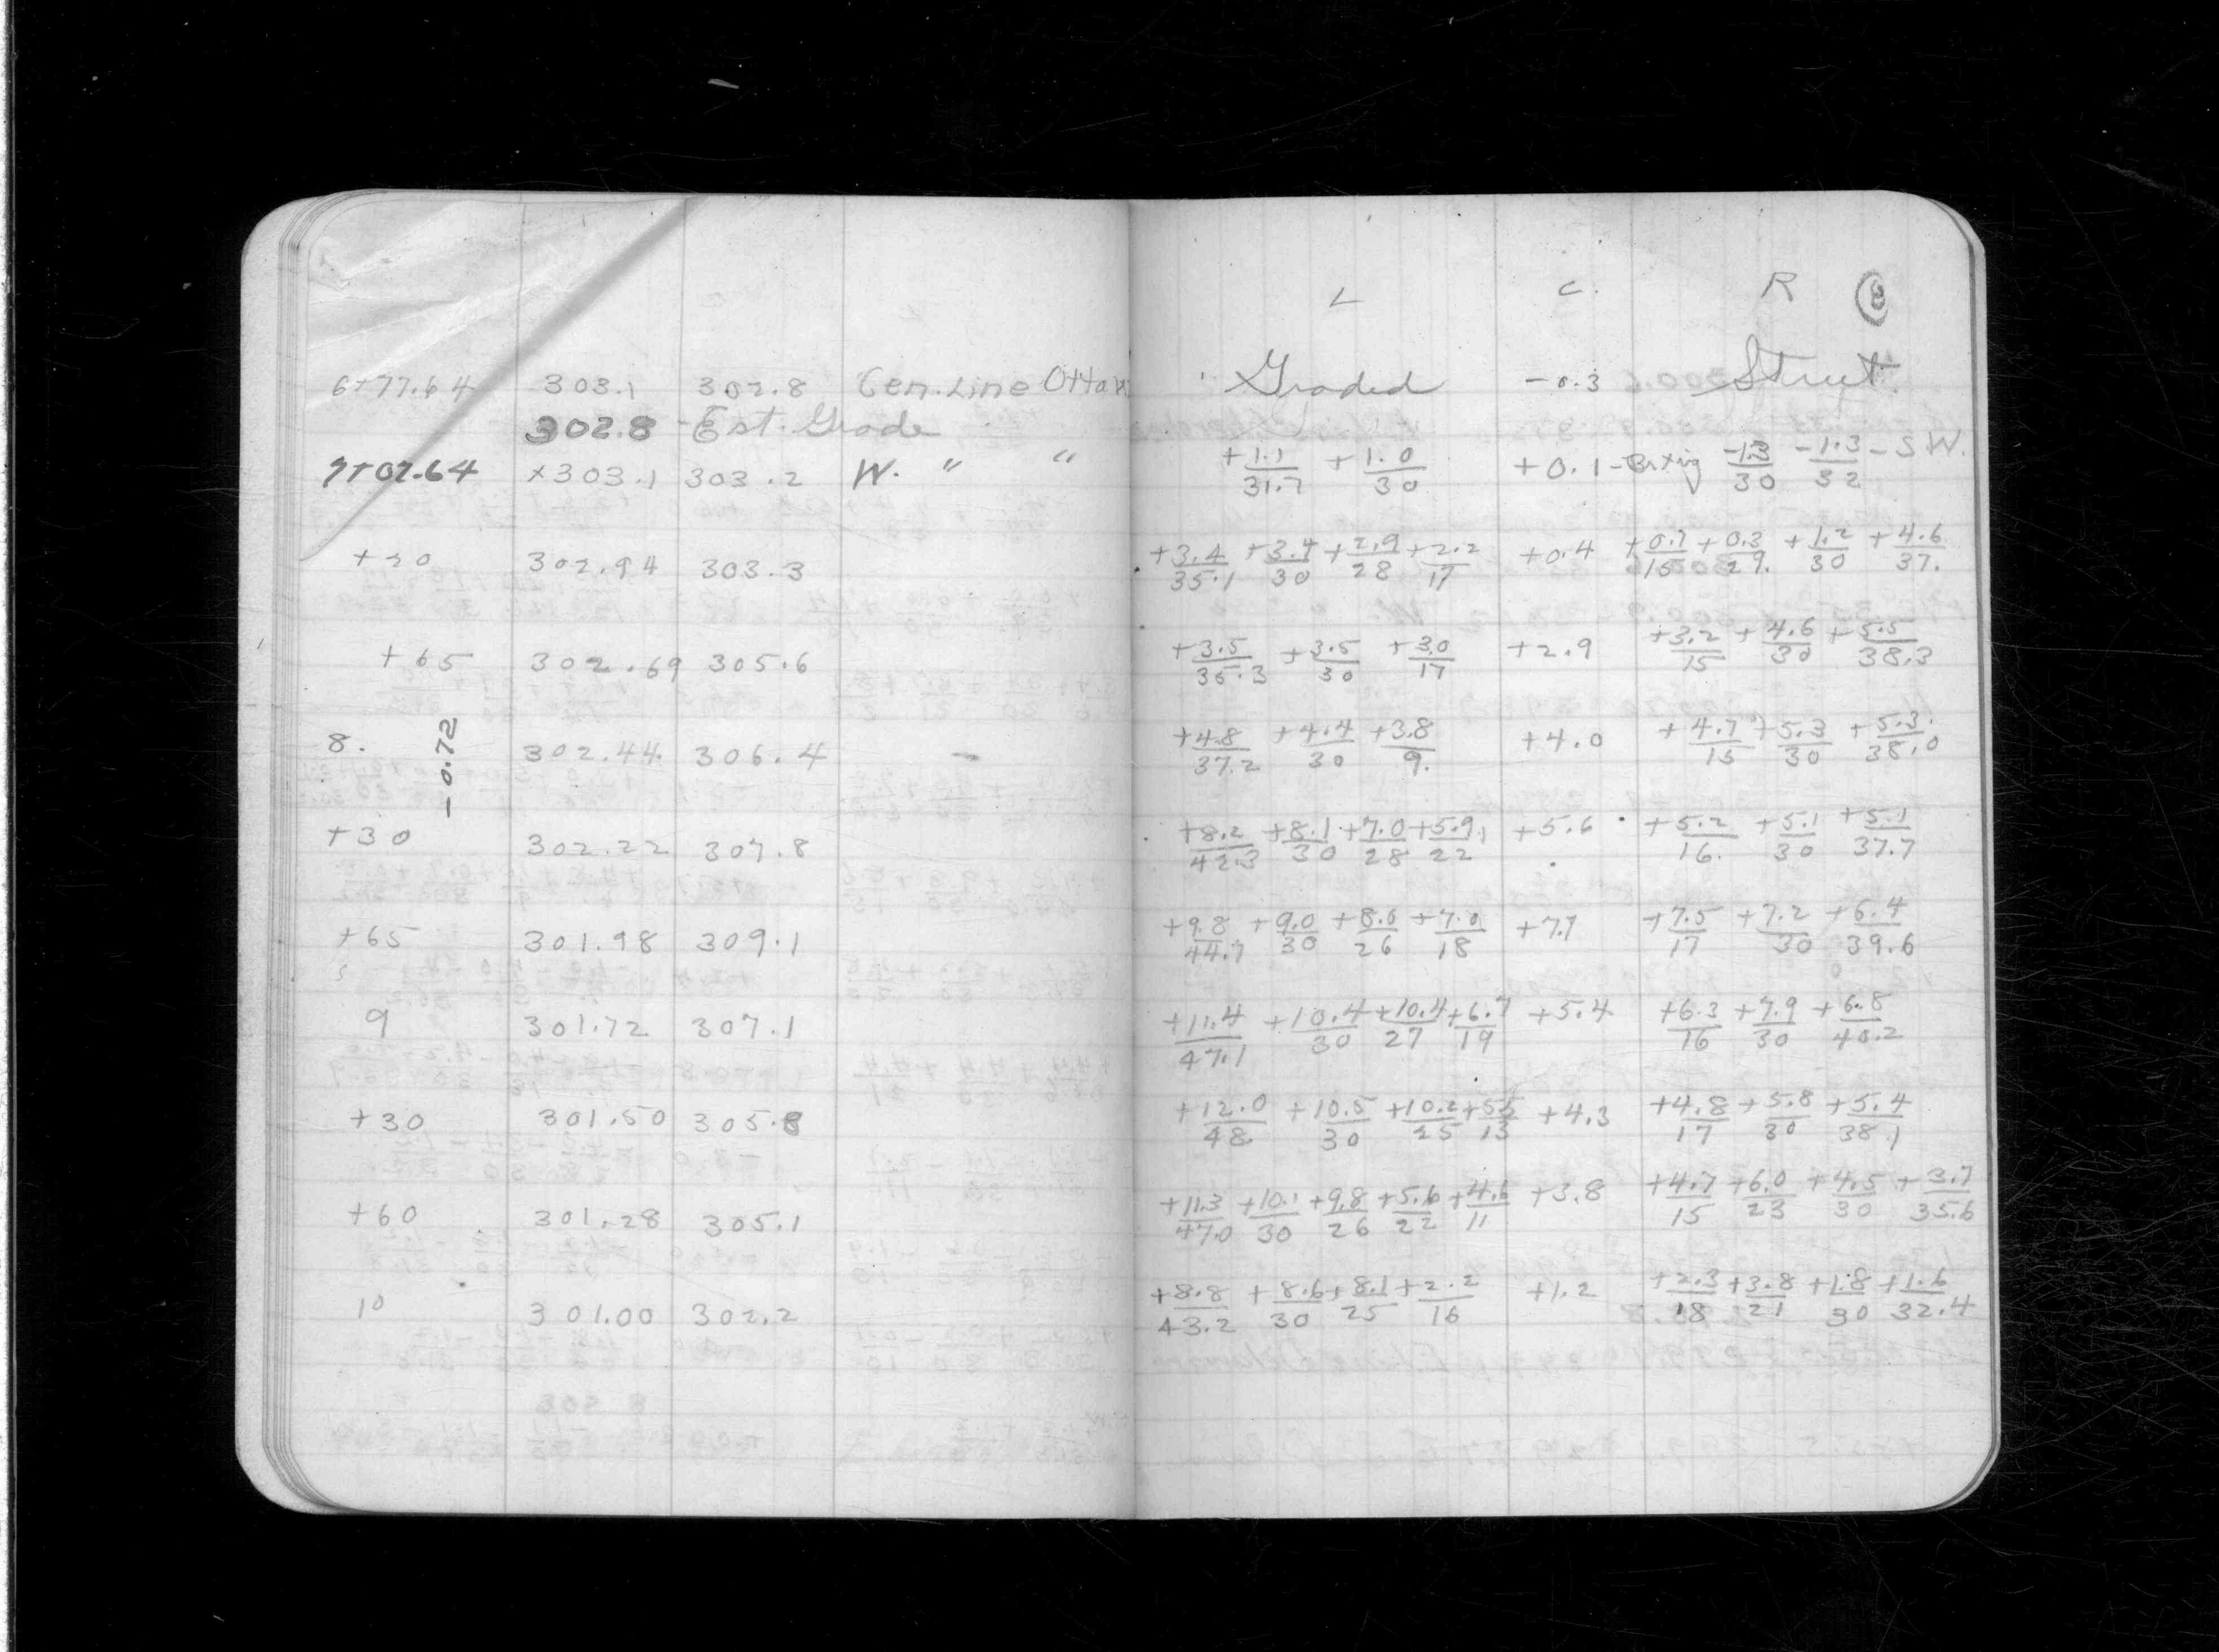 L C. R 8
6+77.64 303.1 302.8 Cen. Line Graded -0.3 Street.
302.8 - Est. Grade
7+07.64 x303.1 303.2 W. " " +1.1/31.7 +1.0/30 +0.1 - -1.3/30 -1.3/32 - S W.
302.94 303.3 +3.4/35.1 +3.4/30 +2.9/28 +2.2/17 +0.4 +0.7/15 +0.3/29. +1.2/30 +4.6/37.
+65 302.69 305.6 +3.5/35.3 +3.5/30 +3.0/17 +2.9 +3.2/15 +4.6/30 +5.5/38.3
8. -0.72 302.44 306.4 +4.8/37.2 +4.4/30 +3.8/9. +4.0 +4.7/15 +5.3/30 +5.3/38.0
+30 302.22 307.8 +8.2/42.3 +8.1/30 +7.0/28 +5.9/22 +5.6 +5.2/16. +5.1/30 +5.1/37.7
+65 301.98 309.1 +9.8/44.7 +9.0/30 +8.6/26 +7.0/18 +7.1 +7.5/17 +7.2/30 +6.4/39.6
9 301.72 307.1 +11.4/47.1 +10.4/30 +10.4/27 +6.7/19 +5.4 +6.3/16 +7.9/30 +6.8/40.2
+30 301.50 305.8 +12.0/48. +10.5/30 +10.2/25 +5.5/13 +4.3 +4.8/17 +5.8/30 +5.4/38.1
+60 301.28 305.1 +11.3/47.0 +10.1/30 +9.8/26 +5.6/22 +4.6/11 +3.8 +4.7/15 +6.0/23 +4.5/30 +3.7/35.6
10 301.00 302.2 +8.8/43.2 +8.6/30 +8.1/25 +2.2/16 +1.2 +2.3/18 +3.8/21 +1.8/30 +1.6/32.4